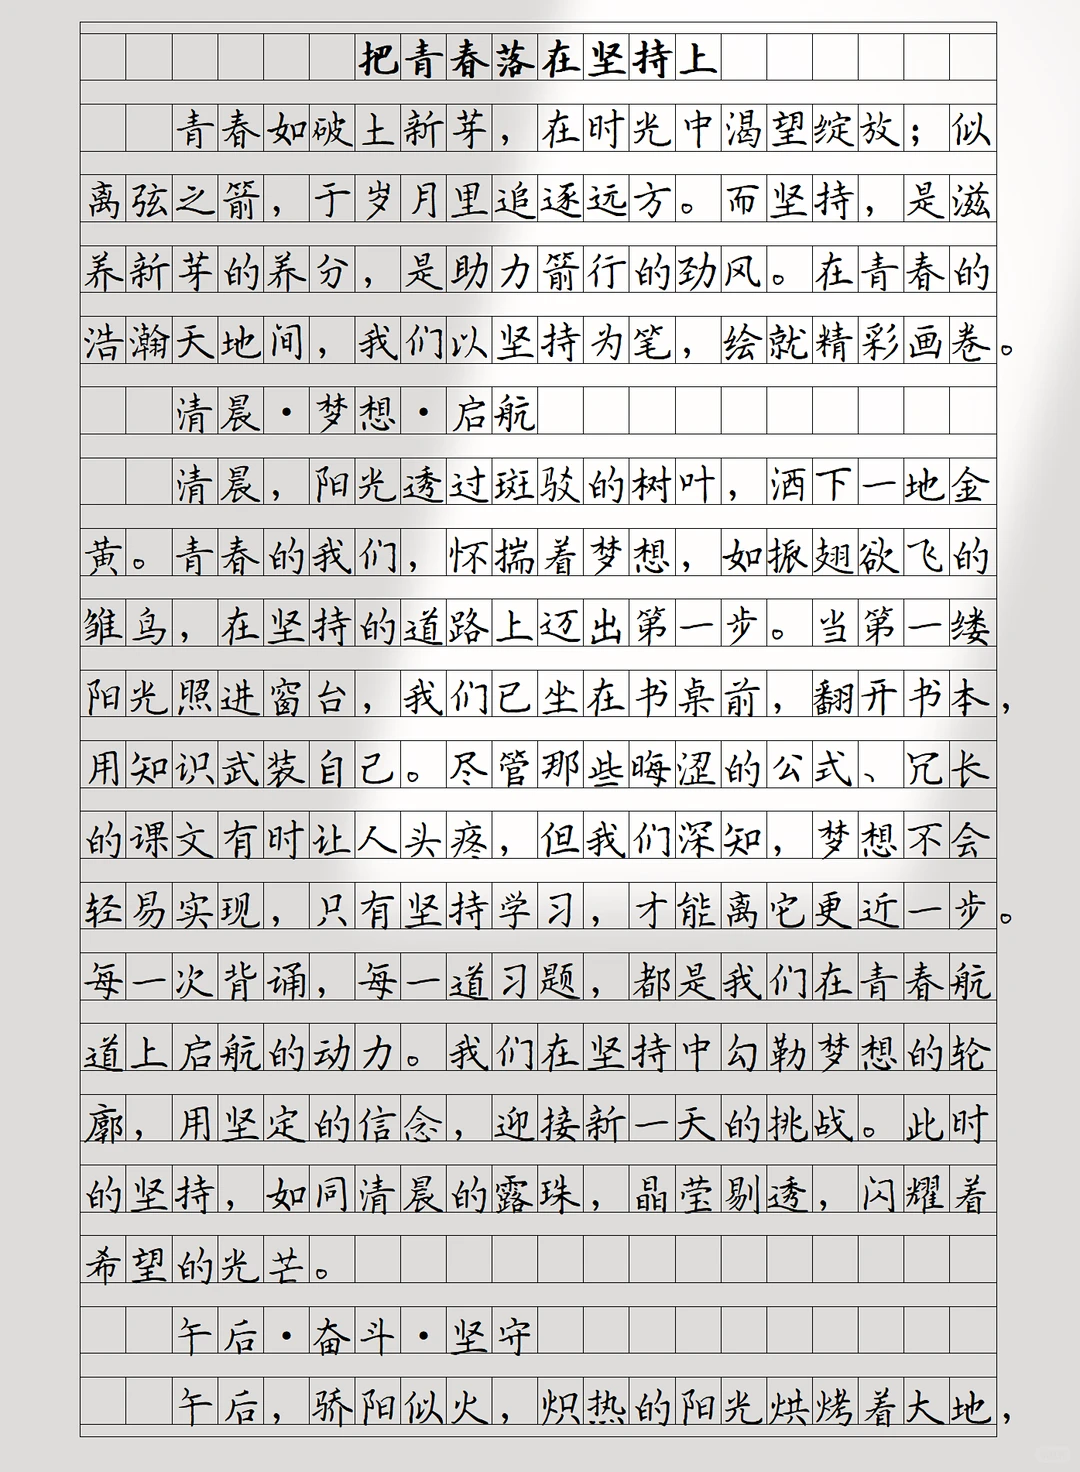 把青春落在坚持上
青春如破土新芽，在时光中渴望绽放；似
离弦之箭，于岁月里追逐远方。而坚持，是滋
养新芽的养分，是助力箭行的劲风。在青春的
浩瀚天地间，我们以坚持为笔，绘就精彩画卷。
清晨·梦想·启航
清晨，阳光透过斑驳的树叶，洒下一地金
黄。青春的我们，怀揣着梦想，如振翅欲飞的
雏鸟，在坚持的道路上迈出第一步。当第一缕
阳光照进窗台，我们已坐在书桌前，翻开书本，
用知识武装自己。尽管那些晦涩的公式、冗长
的课文有时让人头疼，但我们深知，梦想不会
轻易实现，只有坚持学习，才能离它更近一步。
每一次背诵，每一道习题，都是我们在青春航
道上启航的动力。我们在坚持中勾勒梦想的轮
廓，用坚定的信念，迎接新一天的挑战。此时
的坚持，如同清晨的露珠，晶莹剔透，闪耀着
希望的光芒。
午后·奋斗·坚守
午后，骄阳似火，炽热的阳光烘烤着大地，